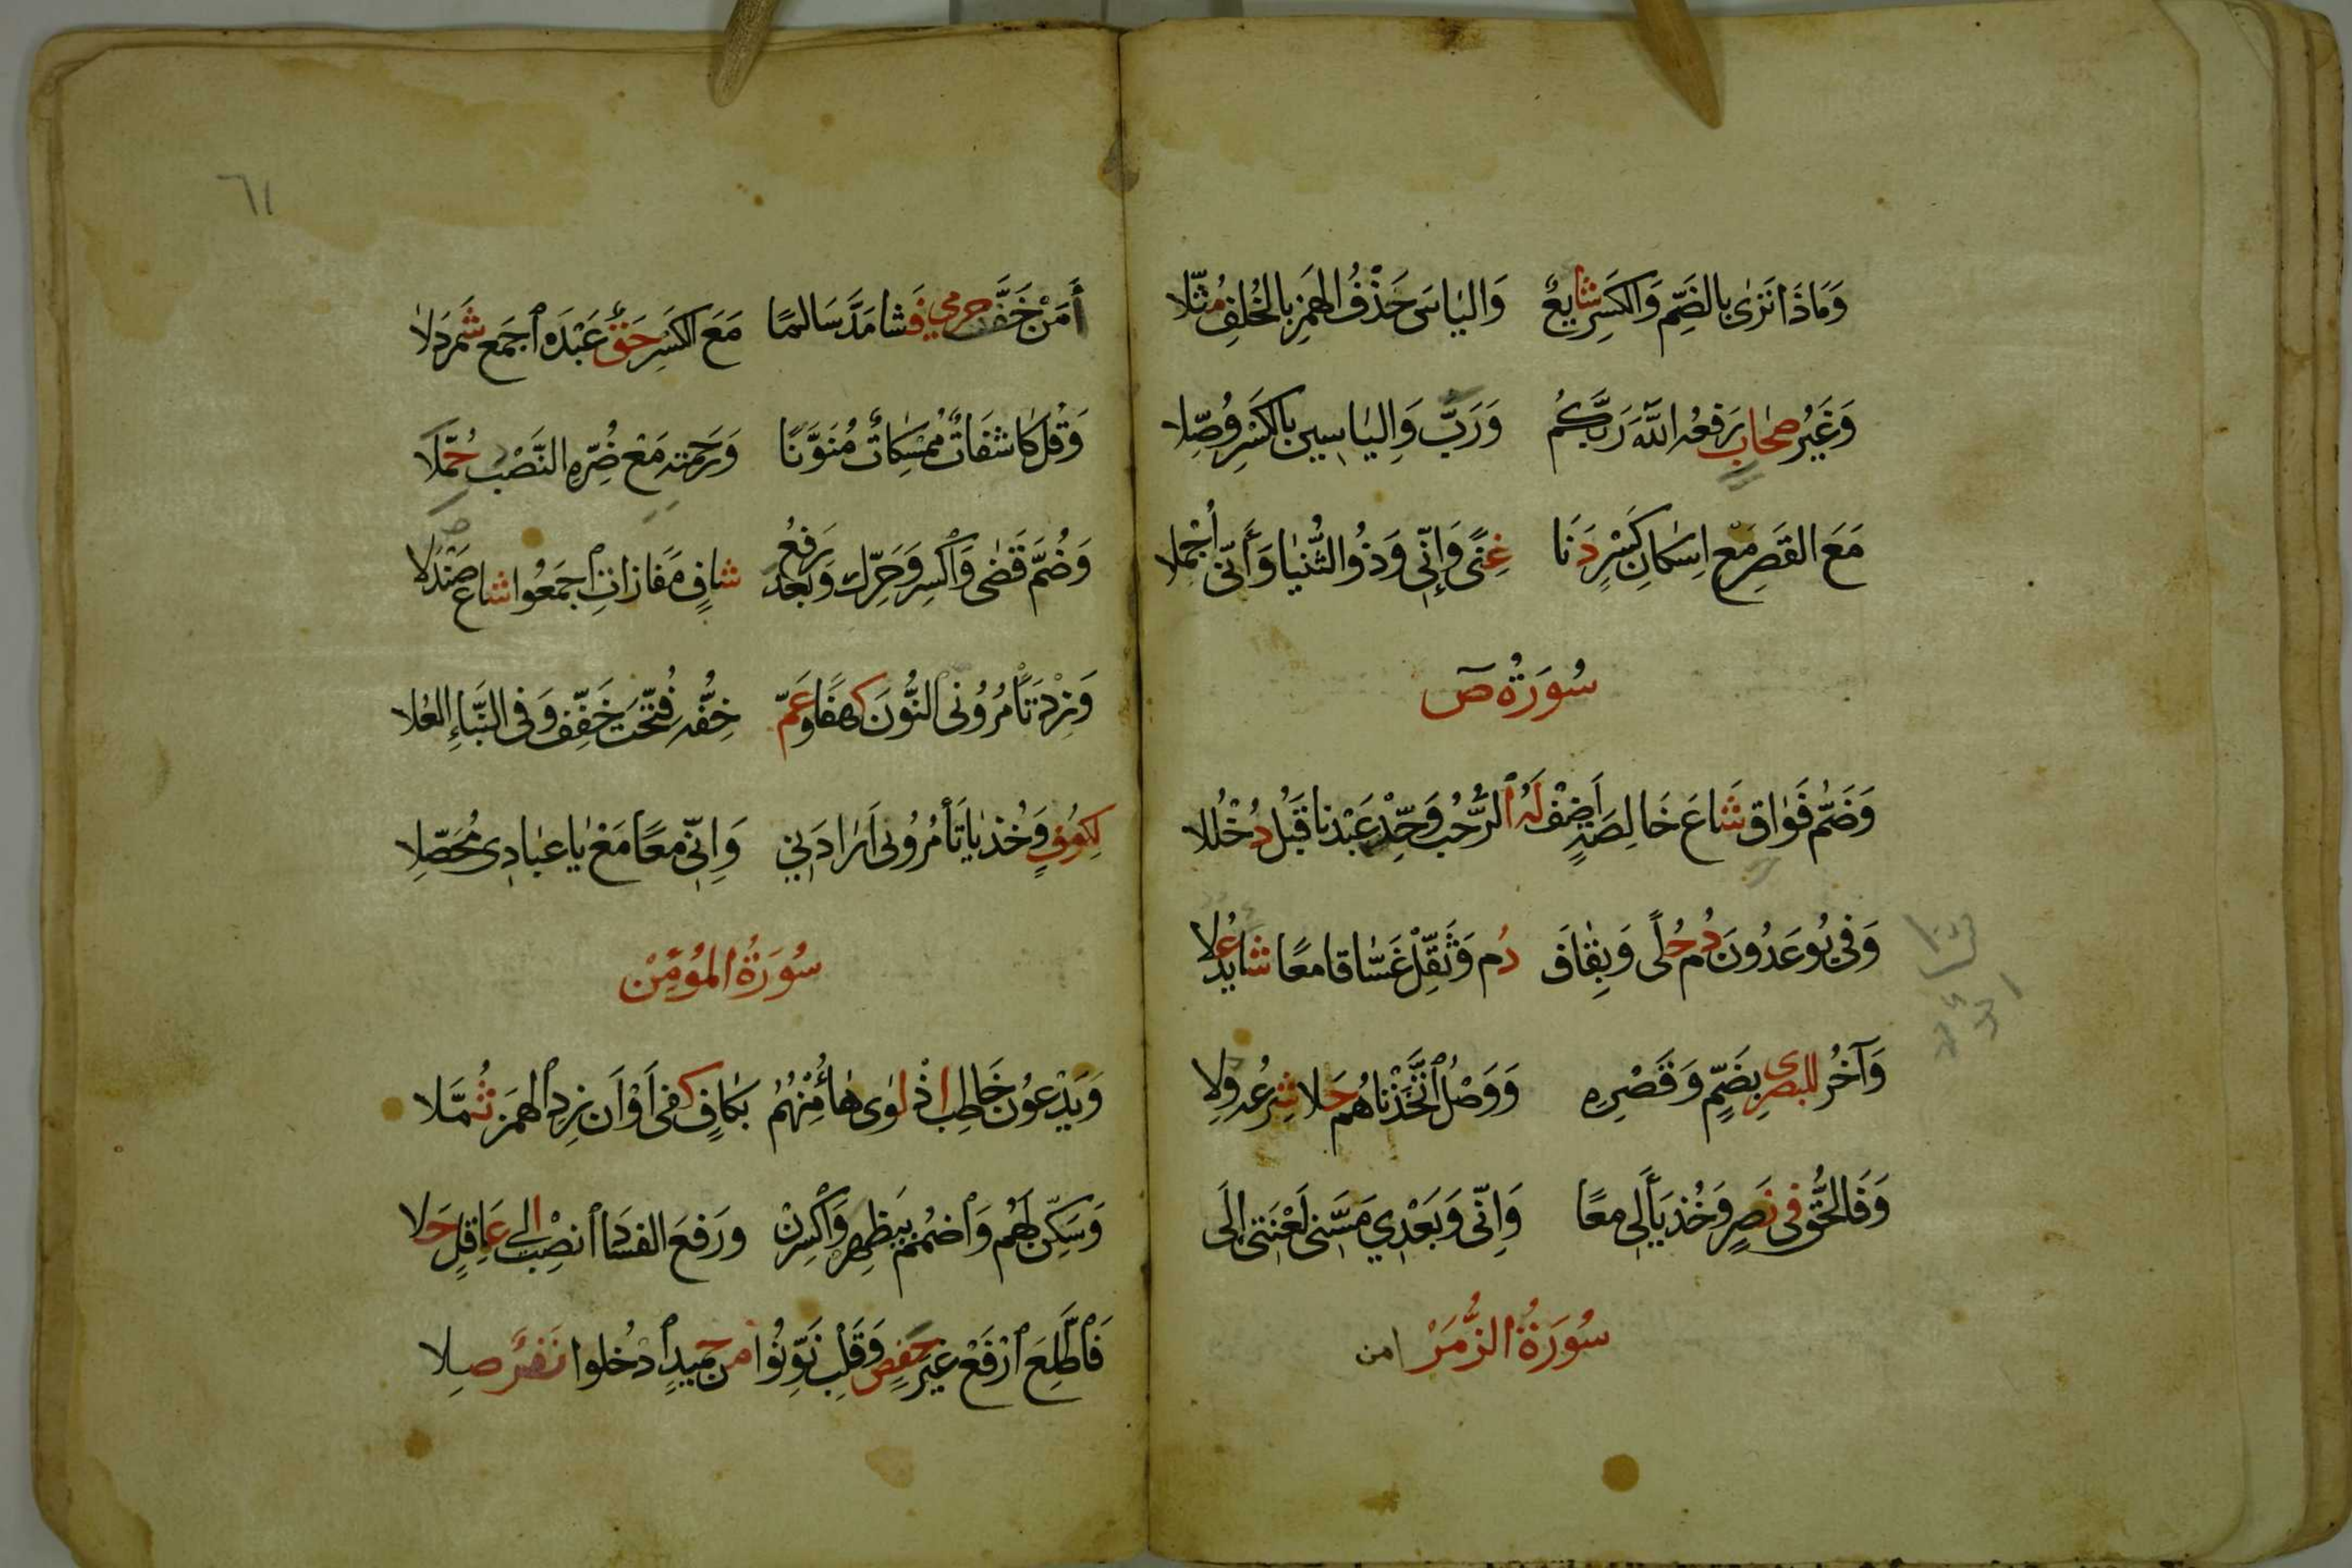 وَمَاذَا تَرٰى بِالضَّمِّ وَالكَسْرِ شَايِعٌ وَاليَاسَ حَذْفُ الهَمْزِ بِالخُلْفِ مُثِّلَا
وَغَيْرُ صِحَابٍ رَفْعُهُ اللّٰهَ رَبَّكُمْ وَرَبَّ وَاِليَاسِينَ بِالكَسْرِ وُصِّلَا
مَعَ القَصْرِ مَعْ اِسْكَانِ كَسْرٍ دَنَا غِنًى وَإِنِّي وَذُو الثُّنْيَا وَأَنِّي أُجْمِلَا
سُورَةُ صٓ
وَضَمُّ فَوَاقٍ شَاعَ خَالِصَةٍ أَضِفْ لَهُ الرُّحْبُ وَحِّدْ عَبْدَنَا قَبْلُ دُخْلُلَا
وَفِي يُوعَدُونَ دُمْ حُلًى وَبِقَافَ دُم وَثَقِّلْ غَسَّاقًا مَعًا شَايِدٌ عُلَا
وَآخَرُ لِلبَصْرِي بِضَمٍّ وَقَصْرِهِ وَوَصْلُ اتَّخَذْنَاهُمْ حَلَا شِرْعُهُ وِلَا
وَفَالحَقُّ فِي نَصْرٍ وَخُذْ يَاءَ لِي مَعًا وَاِنِّي وَبَعْدِي مَسَّنِي لَعْنَتِي إِلَى
سُورَةُ الزُّمَرْ
امن
٦١
أَمَنْ خَفَّ حِرْمِي فَشَا مَدَّ سَالِمًا مَعَ الكَسْرِ حَقٌّ عَبْدَهُ اجْمَعْ شَمَرْدَلَا
وَقُلْ كَاشِفَاتٌ مُمْسِكَاتٌ مُنَوَّنًا وَرَحْمَتِهِ مَعْ ضُرِّهِ النَّصْبُ حُمِّلَا
وَضُمَّ قَضٰى وَاكْسِرْ وَحَرِّكْ وَبَعْدُ رَفْعُ شَافٍ مَفَازَاتِ اجْمَعُوا شَاعَ صَنْدَلَا
وَزِدْ تَأْمُرُونِي النُّونَ كَهْفًا وَعَمَّ خِفُّهُ فُتِّحَتْ خَفِّفْ وَفِي النَّبَإِ العُلَا
لِكُوفٍ وَخُذْ يَا تَأْمُرُونِي أَرَادَنِي وَاِنِّي مَعًا مَعْ يَا عِبَادِي مُحَصِّلَا
سُورَةُ المُؤْمِنْ
وَيَدْعُونَ خَاطِبْ اِذْ لَوٰى هَاءُ مِنْهُمُ بِكَافٍ كَفٰى أَوْ أَنْ زِدِ الهَمْزَ ثُمَّلَا
وَسَكِّنْ لَهُمْ وَاضْمُمْ بِيَظْهِرَ وَاكْسِرَنْ وَرَفْعَ الفَسَادَ انْصِبْ اِلٰى عَاقِلٍ حَلَا
فَاطَّلِعَ ارْفَعْ غَيْرَ حَفْصٍ وَقَلْبِ نَوِّنُوا مِنْ حَمِيدٍ ادْخُلُوا نَفَرٌ صِلَا